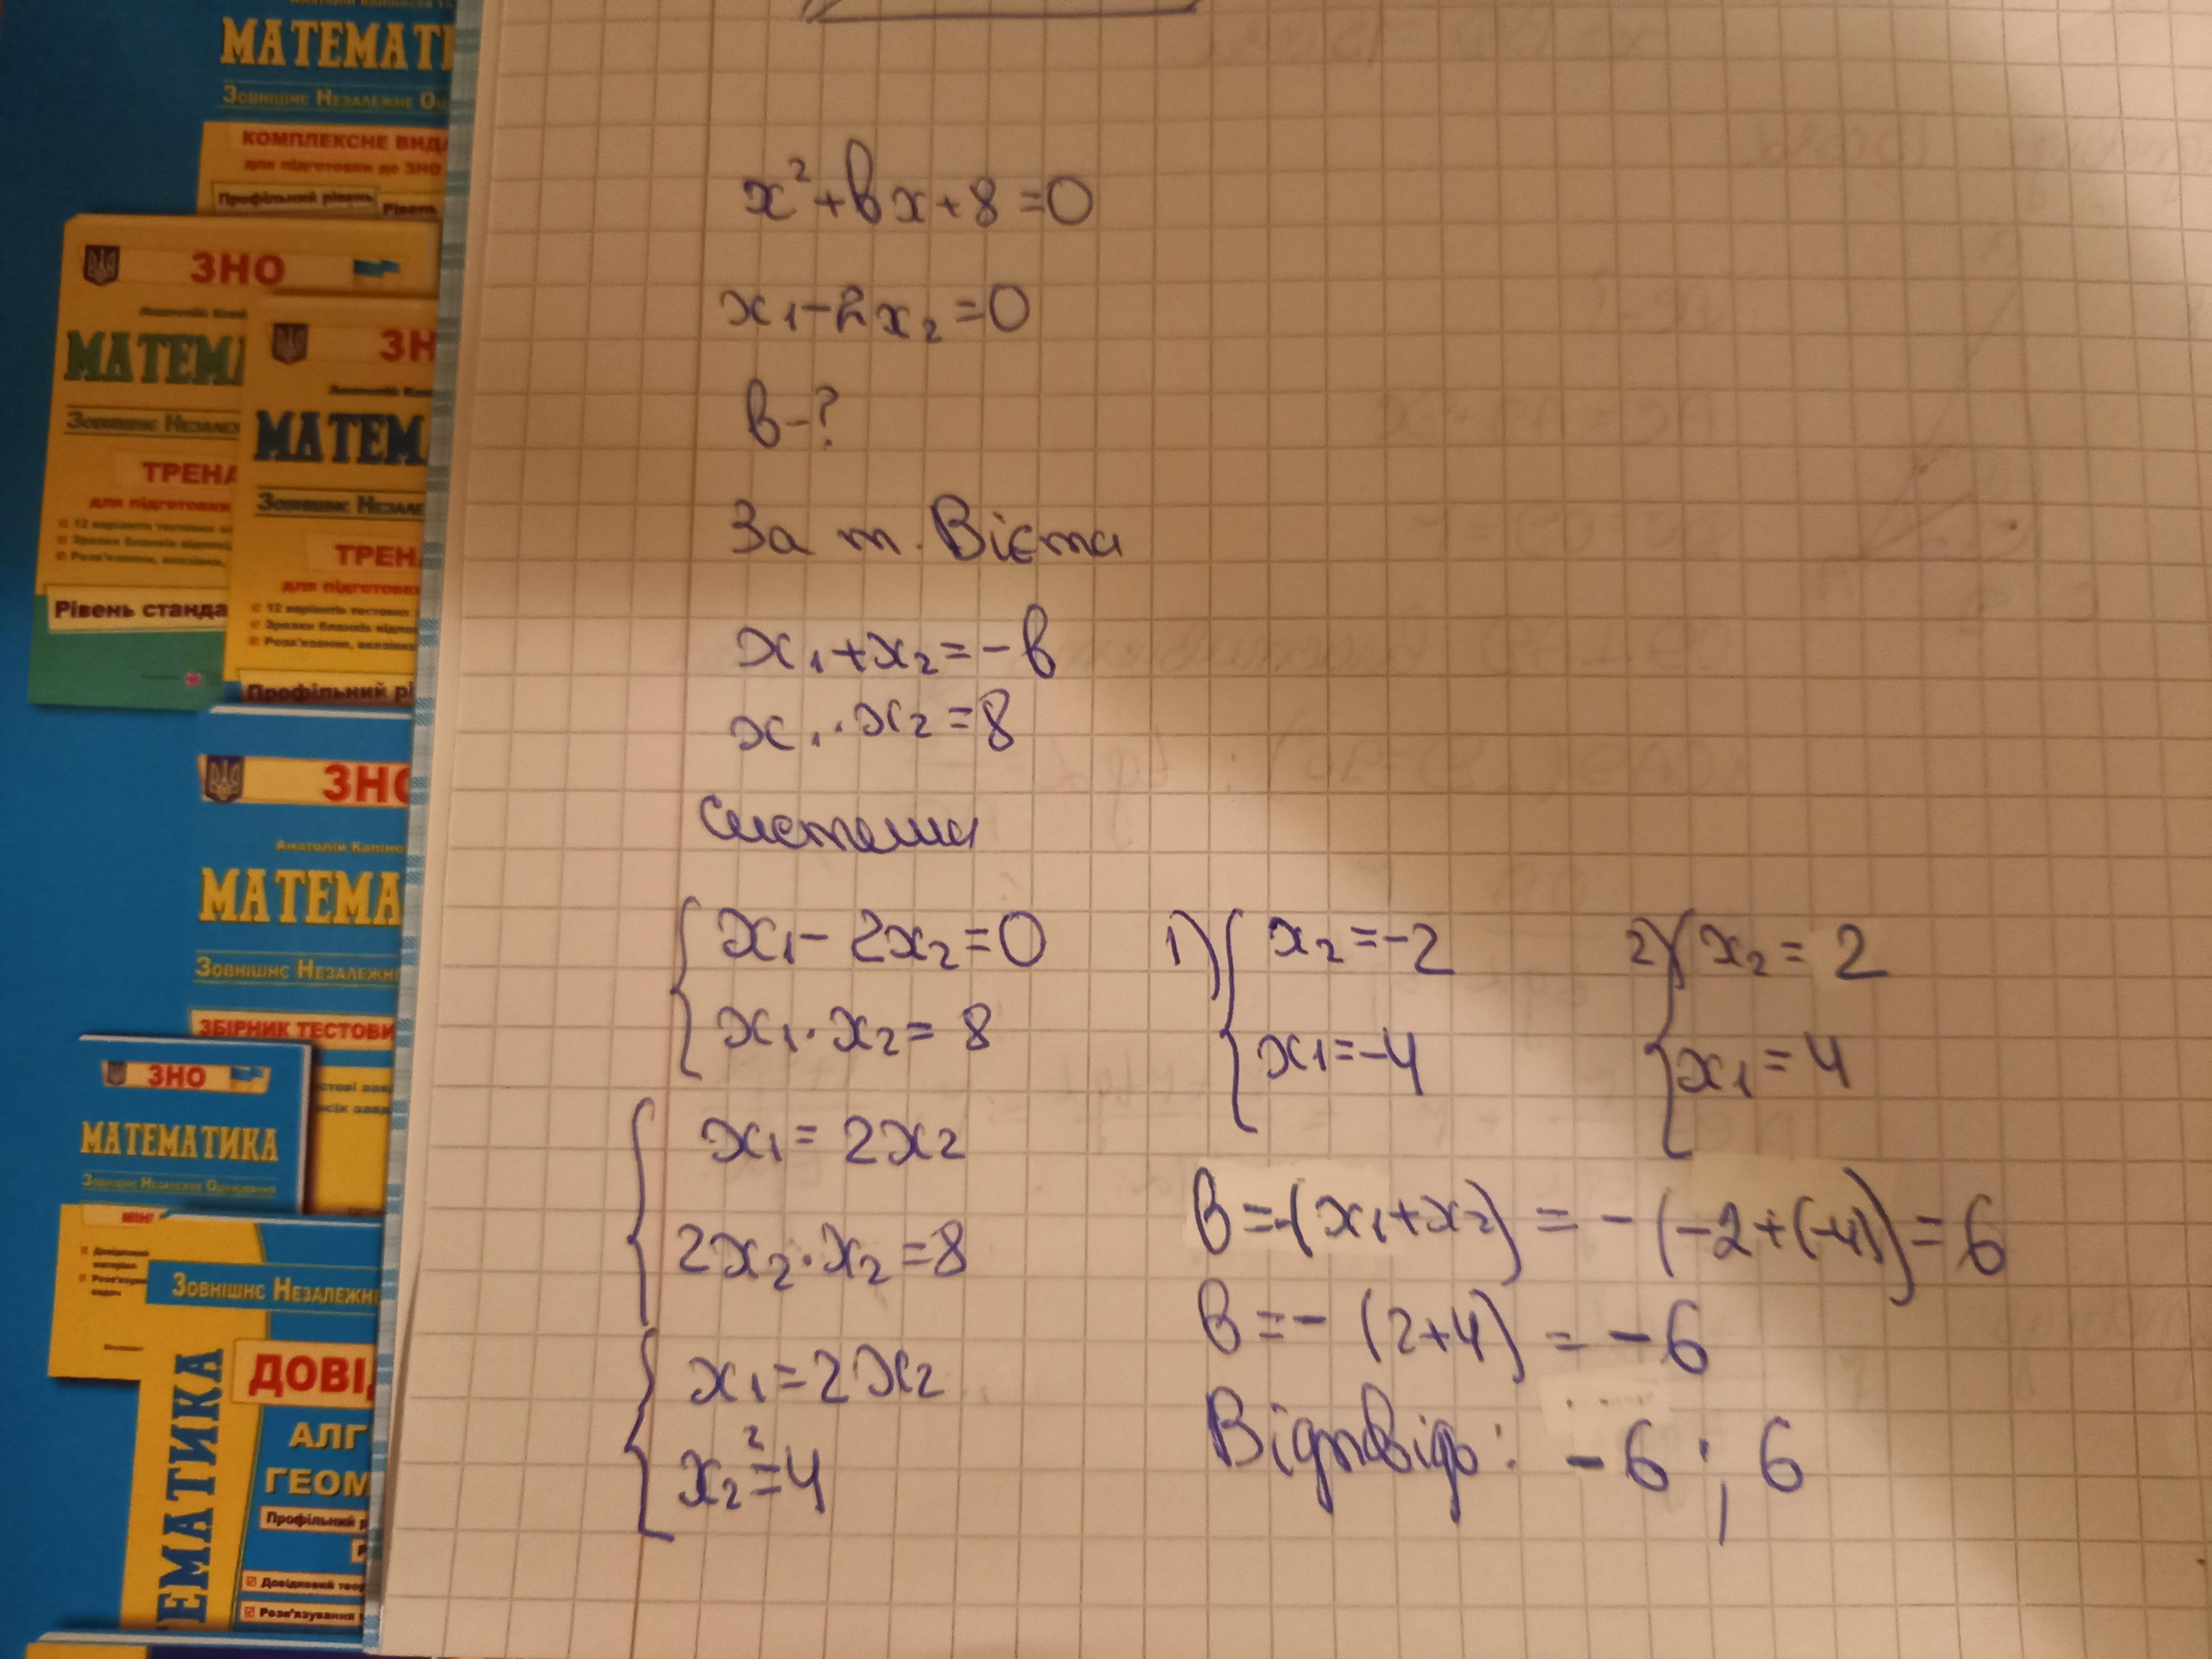 МАТЕМАТ
Зовнішнє Незалежне Оц
КОМПЛЕКСНЕ ВИДА
для підготовки до ЗНО
Профільний рівень
Рівень
ЗНО
МАТЕМА
Зовнішнє Незалеж
ТРЕНА
для підготовки
Рівень станда
ЗН
МАТЕМ
Зовнішнє Незале
ТРЕН
для підготовки
Профільний рі
ЗНО
Анатолій Капіно
МАТЕМА
Зовнішнє Незалежн
ЗБІРНИК ТЕСТОВИ
ЗНО
МАТЕМАТИКА
Зовнішнє Незалежне Оцінювання
МІНІ
Зовнішнє Незалежн
ЕМАТИКА
ДОВІ
АЛГ
ГЕОМ
Профільний р
Довідковий теор
Розв'язування
x²+вx+8=0
x₁-2x₂=0
в-?
За т. Вієта
x₁+x₂=-в
x₁·x₂=8
система
{x₁-2x₂=0
x₁·x₂=8
{x₁=2x₂
2x₂·x₂=8
{x₁=2x₂
x₂²=4
1){x₂=-2
x₁=-4
2){x₂=2
x₁=4
в=-(x₁+x₂)=-(-2+(-4))=6
в=-(2+4)=-6
Відповідь: -6; 6